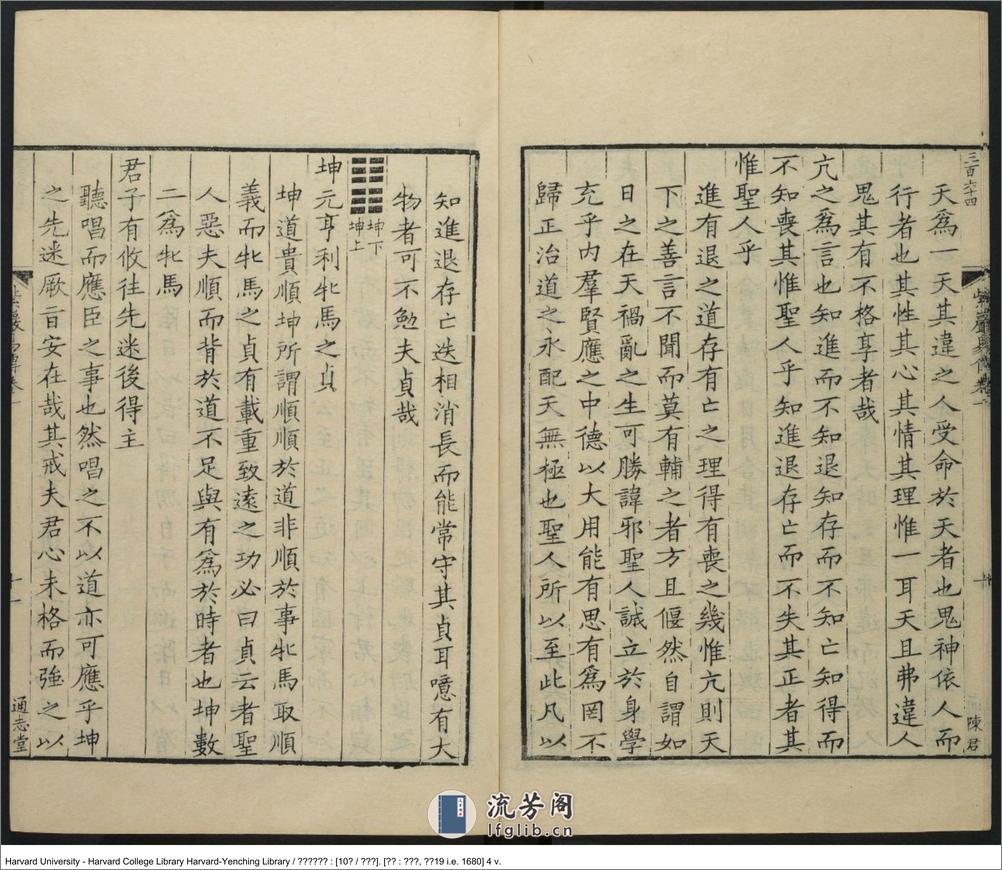 三百六十四
天爲一天其違之人受命於天者也鬼神依人而
行者也其性其心其情其理惟一耳天且弗違人
鬼其有不格享者哉
亢之爲言也知進而不知退知存而不知亡知得而
不知喪其惟聖人乎知進退存亡而不失其正者其
惟聖人乎
進有退之道存有亡之理得有喪之幾惟亢則天
下之善言不聞而莫有輔之者方且偃然自謂如
日之在天禍亂之生可勝諱邪聖人誠立於身學
充乎内羣賢應之中德以大用能有思有爲罔不
歸正治道之永配天無極也聖人所以至此凡以
紫巖易傳卷一
陳君
知進退存亡迭相消長而能常守其貞耳噫有大
物者可不勉夫貞哉
坤下
坤上
坤元亨利牝馬之貞
坤道貴順坤所謂順順於道非順於事牝馬取順
義而牝馬之貞有載重致遠之功必曰貞云者聖
人惡夫順而背於道不足與有爲於時者也坤數
二爲牝馬
君子有攸往先迷後得主
聽唱而應臣之事也然唱之不以道亦可應乎坤
之先迷厥旨安在哉其戒夫君心未格而強之以
紫巖易傳卷一
十一
通志堂
流芳阁
lfglib.cn
Harvard University - Harvard College Library Harvard-Yenching Library / ?????? : [10? / ???]. [?? : ???, ??19 i.e. 1680] 4 v.